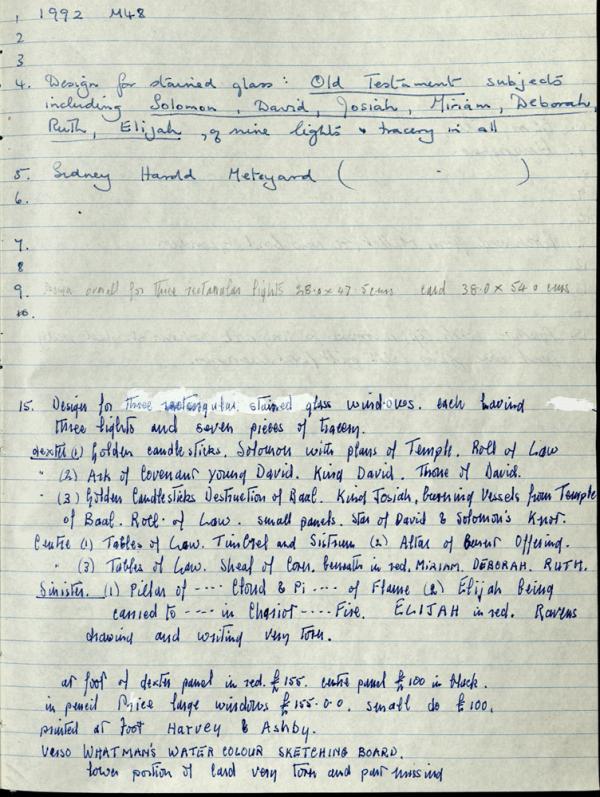 1 1992 M48
2
3
4. Design for stained glass: Old Testament subjects
including Solomon, David, Josiah, Miriam, Deborah,
Ruth, Elijah, of nine lights & tracery in all
5. Sidney Harold Meteyard ( )
6.
7.
8
9. Design overall for three rectangular lights 28.0 x 47.5 cms card 38.0 x 54.0 cms
10.
15. Design for three rectangular stained glass windows. each having
three lights and seven pieces of tracery.
dexter (1) Golden candlesticks. Solomon with plans of Temple. Roll of Law
" (2) Ark of Covenant young David. King David. Throne of David.
" (3) Golden Candlesticks Destruction of Baal. King Josiah, burning vessels from Temple
of Baal. Roll of Law. small panels. Star of David & Solomon's Knot.
Centre (1) Tables of Law. Timbrel and Sistrum (2) Altar of Burnt Offering.
" (3) Tables of Law. Sheaf of Corn. beneath in red, MIRIAM. DEBORAH. RUTH.
Sinister. (1) Pillar of ---- Cloud & Pi ---- of Flame (2) Elijah being
carried to ---- in Chariot ---- Fire. ELIJAH in red. Ravens
drawing and writing very torn.
at foot of dexter panel in red. £155. centre panel £100 in black.
in pencil Price large windows £155.0.0. small do £100.
printed at foot Harvey & Ashby.
VERSO WHATMAN'S WATER COLOUR SKETCHING BOARD.
lower portion of card very torn and part missing